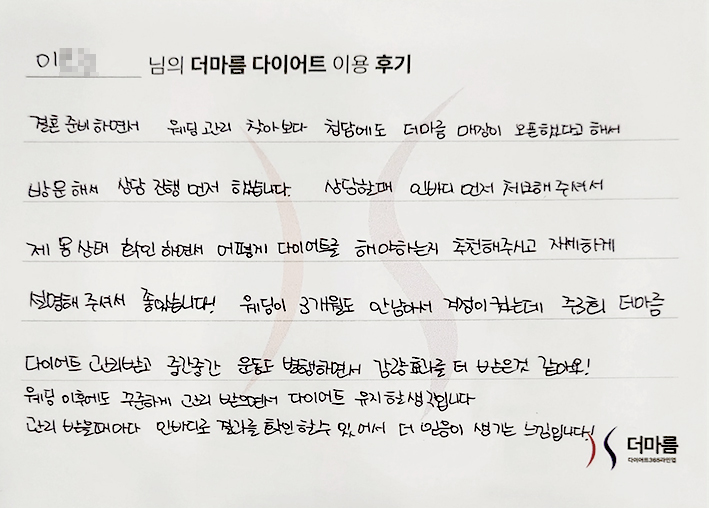 이 님의 더마름 다이어트 이용 후기
결혼 준비하면서 웨딩 관리 찾아보다 청담에도 더마름 매장이 오픈했다고 해서
방문해서 상담 진행 먼저 했습니다. 상담할때 인바디 먼저 체크해 주셔서
제 몸 상태 확인 하면서 어떻게 다이어트를 해야하는지 추천해주시고 자세하게
설명해 주셔서 좋았습니다! 웨딩이 3개월도 안남아서 걱정이 컸는데 주3회 더마름
다이어트 관리받고 중간중간 운동도 병행하면서 감량효과를 더 받은것 같아요!
웨딩 이후에도 꾸준하게 관리 받으면서 다이어트 유지 할 생각입니다
관리 받을때마다 인바디로 결과를 확인 할수 있어서 더 믿음이 생기는 느낌입니다!
더마름
다이어트365라인업